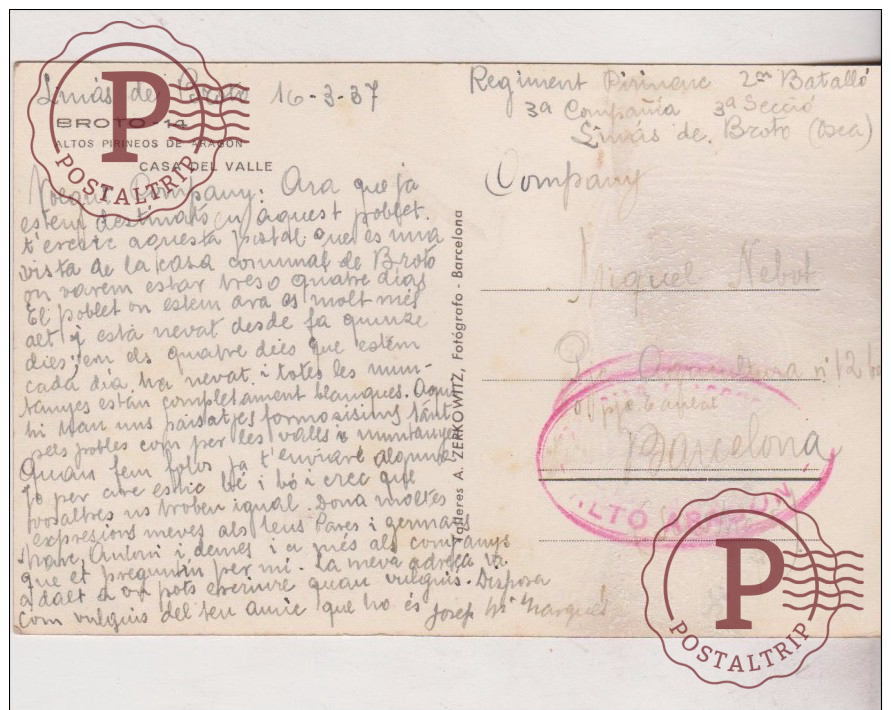 Linás de Broto 16-3-37
BROTO-14
ALTOS PIRINEOS DE ARAGON
CASA DEL VALLE
Company: Ara que ja
estem destinats en aquest poblet.
t'escric aquesta postal que es una
vista de la casa comunal de Broto
on varem estar tres o quatre dies
El poblet on estem ara es molt més
alt i està nevat desde fa quinze
dies; em els quatre dies que estem
cada dia ha nevat i totes les mun-
tanyes estan completament blanques. Aquí
hi han uns paisatjes formosisims tant
pels pobles com per les valls i muntanyes
Quan fem fotos ja t'enviaré alguna
Jo per are estic bé i bó i crec que
vosaltres us trobeu igual. Dona moltes
expresions meves als teus Pares i germans
Antoni i demés i a més als companys
que et preguntin per mi. La meva adreça va
a dalt a on pots escriure quan vulguis. Disposa
com vulguis del teu amic que ho és Josep Mª Marqués
Talleres A. ZERKOWITZ, Fotógrafo - Barcelona
Regiment Pirinenc 2on Batalló
3a Compañia 3ª Secció
Linás de Broto (Osca)
Company
Miquel Nebot
nº 12
Barcelona
ALTO ARAGON
P
POSTALTRIP
P
POSTALTRIP